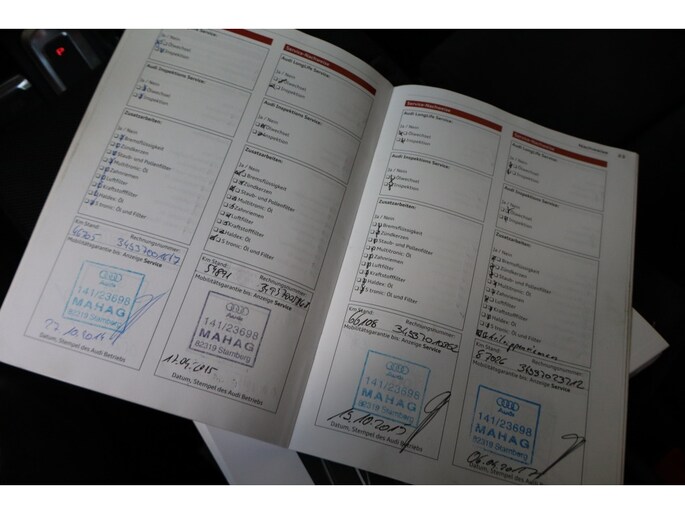 Audi Longlife Service:
Ölwechsel
Inspektion
Audi Inspektions Service:
Ja / Nein
Ölwechsel
Inspektion
Zusatzarbeiten:
Ja / Nein
Bremsflüssigkeit
Zündkerzen
Staub- und Pollenfilter
Multitronic: Öl
Zahnriemen
Luftfilter
Kraftstofffilter
Haldex: Öl
S tronic: Öl und Filter
Km Stand:
Rechnungsnummer:
Mobilitätsgarantie bis: Anzeige Service
Audi
141/23698
MAHAG
82319 Starnberg
Datum, Stempel des Audi Betriebs
Service-Nachweise
Audi Longlife Service:
Ja / Nein
Ölwechsel
Inspektion
Audi Inspektions Service:
Ja / Nein
Ölwechsel
Inspektion
Zusatzarbeiten:
Ja / Nein
Bremsflüssigkeit
Zündkerzen
Staub- und Pollenfilter
Multitronic: Öl
Zahnriemen
Luftfilter
Kraftstofffilter
Haldex: Öl
S tronic: Öl und Filter
Km Stand:
Rechnungsnummer:
Mobilitätsgarantie bis: Anzeige Service
Audi
141/23698
MAHAG
82319 Starnberg
Datum, Stempel des Audi Betriebs
Service-Nachweise
Audi Longlife Service:
Ja / Nein
Ölwechsel
Inspektion
Audi Inspektions Service:
Ja / Nein
Ölwechsel
Inspektion
Zusatzarbeiten:
Ja / Nein
Bremsflüssigkeit
Zündkerzen
Staub- und Pollenfilter
Multitronic: Öl
Zahnriemen
Luftfilter
Kraftstofffilter
Haldex: Öl
S tronic: Öl und Filter
Km Stand:
66106
Rechnungsnummer:
Mobilitätsgarantie bis: Anzeige Service
Audi
141/23698
MAHAG
82319 Starnberg
Datum, Stempel des Audi Betriebs
Nachweise
Service-Nachweise
Audi Longlife Service:
Ja / Nein
Ölwechsel
Inspektion
Audi Inspektions Service:
Ja / Nein
Ölwechsel
Inspektion
Zusatzarbeiten:
Ja / Nein
Bremsflüssigkeit
Zündkerzen
Staub- und Pollenfilter
Multitronic: Öl
Zahnriemen
Luftfilter
Kraftstofffilter
Haldex: Öl
S tronic: Öl und Filter
Km Stand:
Rechnungsnummer:
Mobilitätsgarantie bis: Anzeige Service
Audi
141/23698
MAHAG
82319 Starnberg
Datum, Stempel des Audi Betriebs